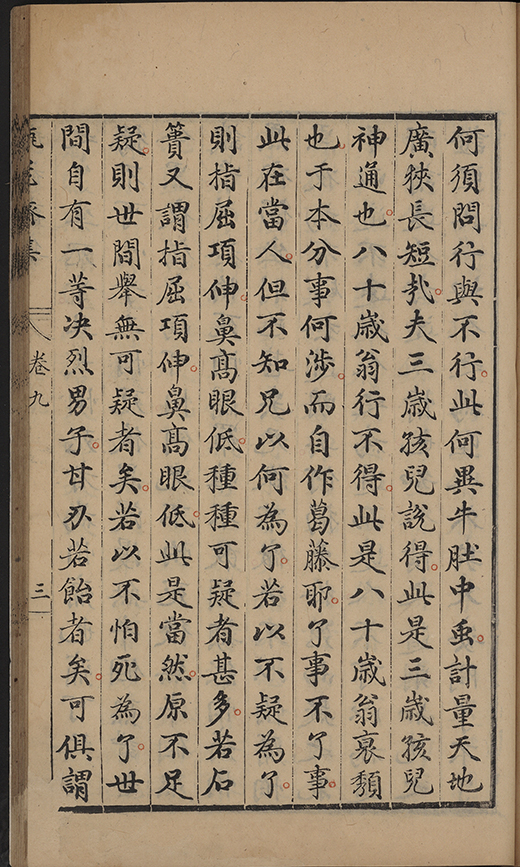 何須問行與不行。此何異牛肚中虫。計量天地
廣狹長短㢤。夫三歲孩兒說得。此是三歲孩兒
神通也。八十歲翁行不得。此是八十歲翁衰頹
也。于本分事何涉。而自作葛藤耶。了事不了事。
此在當人。但不知兄以何為了。若以不疑為了。
則指屈項伸。鼻高眼低。種種可疑者甚多。若石
簣又謂指屈項伸。鼻高眼低。此是當然。原不足
疑。則世間舉無可疑者矣。若以不怕死為了。世
間自有一等决烈男子。甘刃若飴者矣。可俱謂
卷九
三